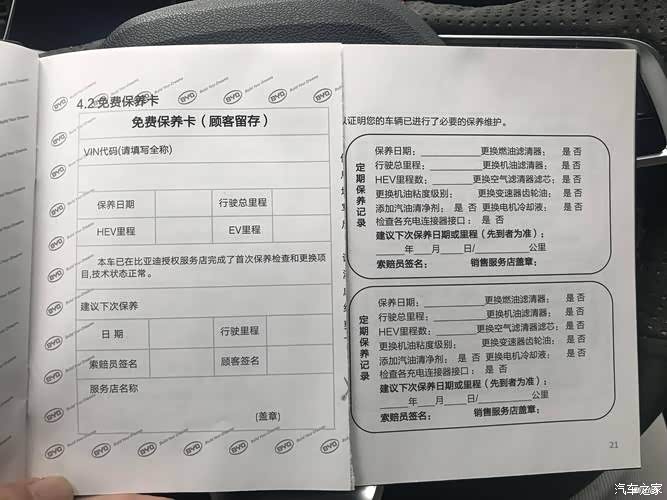 4.2 免费保养卡
免费保养卡（顾客留存）
VIN代码(请填写全称)
保养日期 行驶总里程
HEV里程 EV里程
本车已在比亚迪授权服务店完成了首次保养检查和更换项
目,技术状态正常。
建议下次保养
日 期 行驶里程
索赔员签名 顾客签名
服务店名称
(盖章)
BYD Build Your Dreams
以证明您的车辆已进行了必要的保养维护。
定期保养记录
保养日期：____________更换燃油滤清器： 是 否
行驶总里程：____________更换机油滤清器： 是 否
HEV里程数：____________更换空气滤清器滤芯：是 否
更换机油粘度级别： 更换变速器齿轮油： 是 否
添加汽油清净剂： 是 否 更换电机冷却液： 是 否
检查各充电连接器接口： 是 否
建议下次保养日期或里程（先到者为准）：
______年____月____日/____________公里
索赔员签名： 销售服务店盖章：
定期保养记录
保养日期：____________更换燃油滤清器： 是 否
行驶总里程：____________更换机油滤清器： 是 否
HEV里程数：____________更换空气滤清器滤芯：是 否
更换机油粘度级别： 更换变速器齿轮油： 是 否
添加汽油清净剂： 是 否 更换电机冷却液： 是 否
检查各充电连接器接口： 是 否
建议下次保养日期或里程（先到者为准）：
______年____月____日/____________公里
索赔员签名： 销售服务店盖章：
21
汽车之家